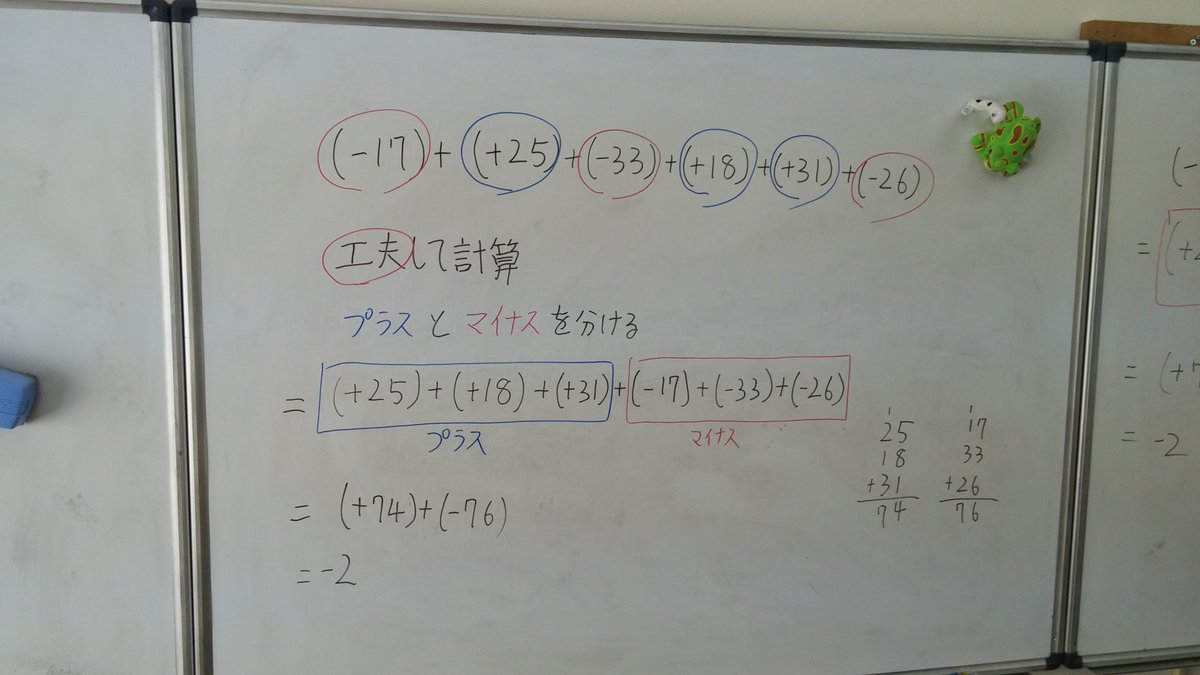 (-17)+(+25)+(-33)+(+18)+(+31)+(-26)
工夫して計算
プラスとマイナスを分ける
=(+25)+(+18)+(+31)+(-17)+(-33)+(-26)
プラス マイナス
=(+74)+(-76)
=-2
1
25
18
+31
74
1
17
33
+26
76
(-
=(+2
=(+7
=-2